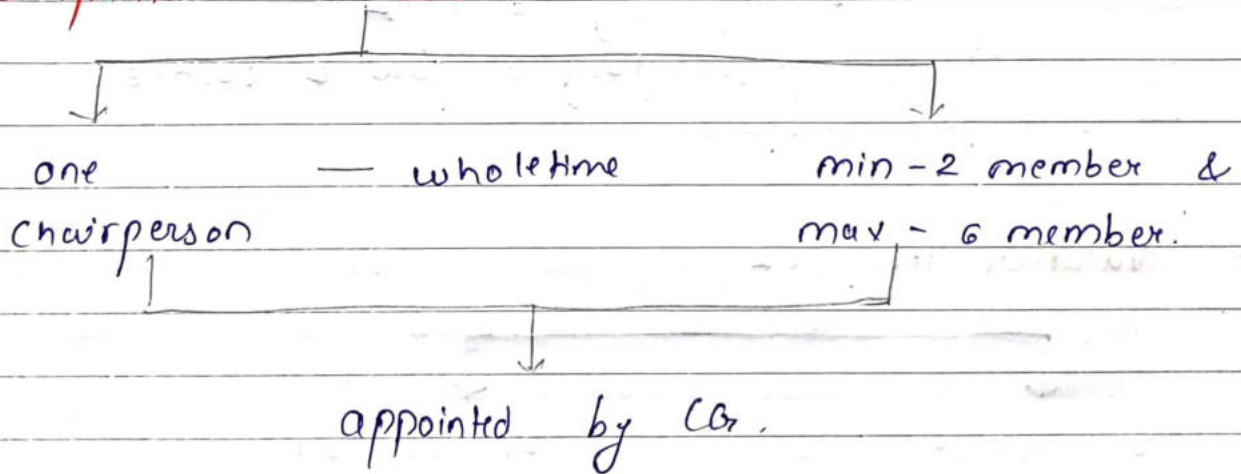 one — wholetime min - 2 member &
Chairperson max - 6 member.
appointed by CG.